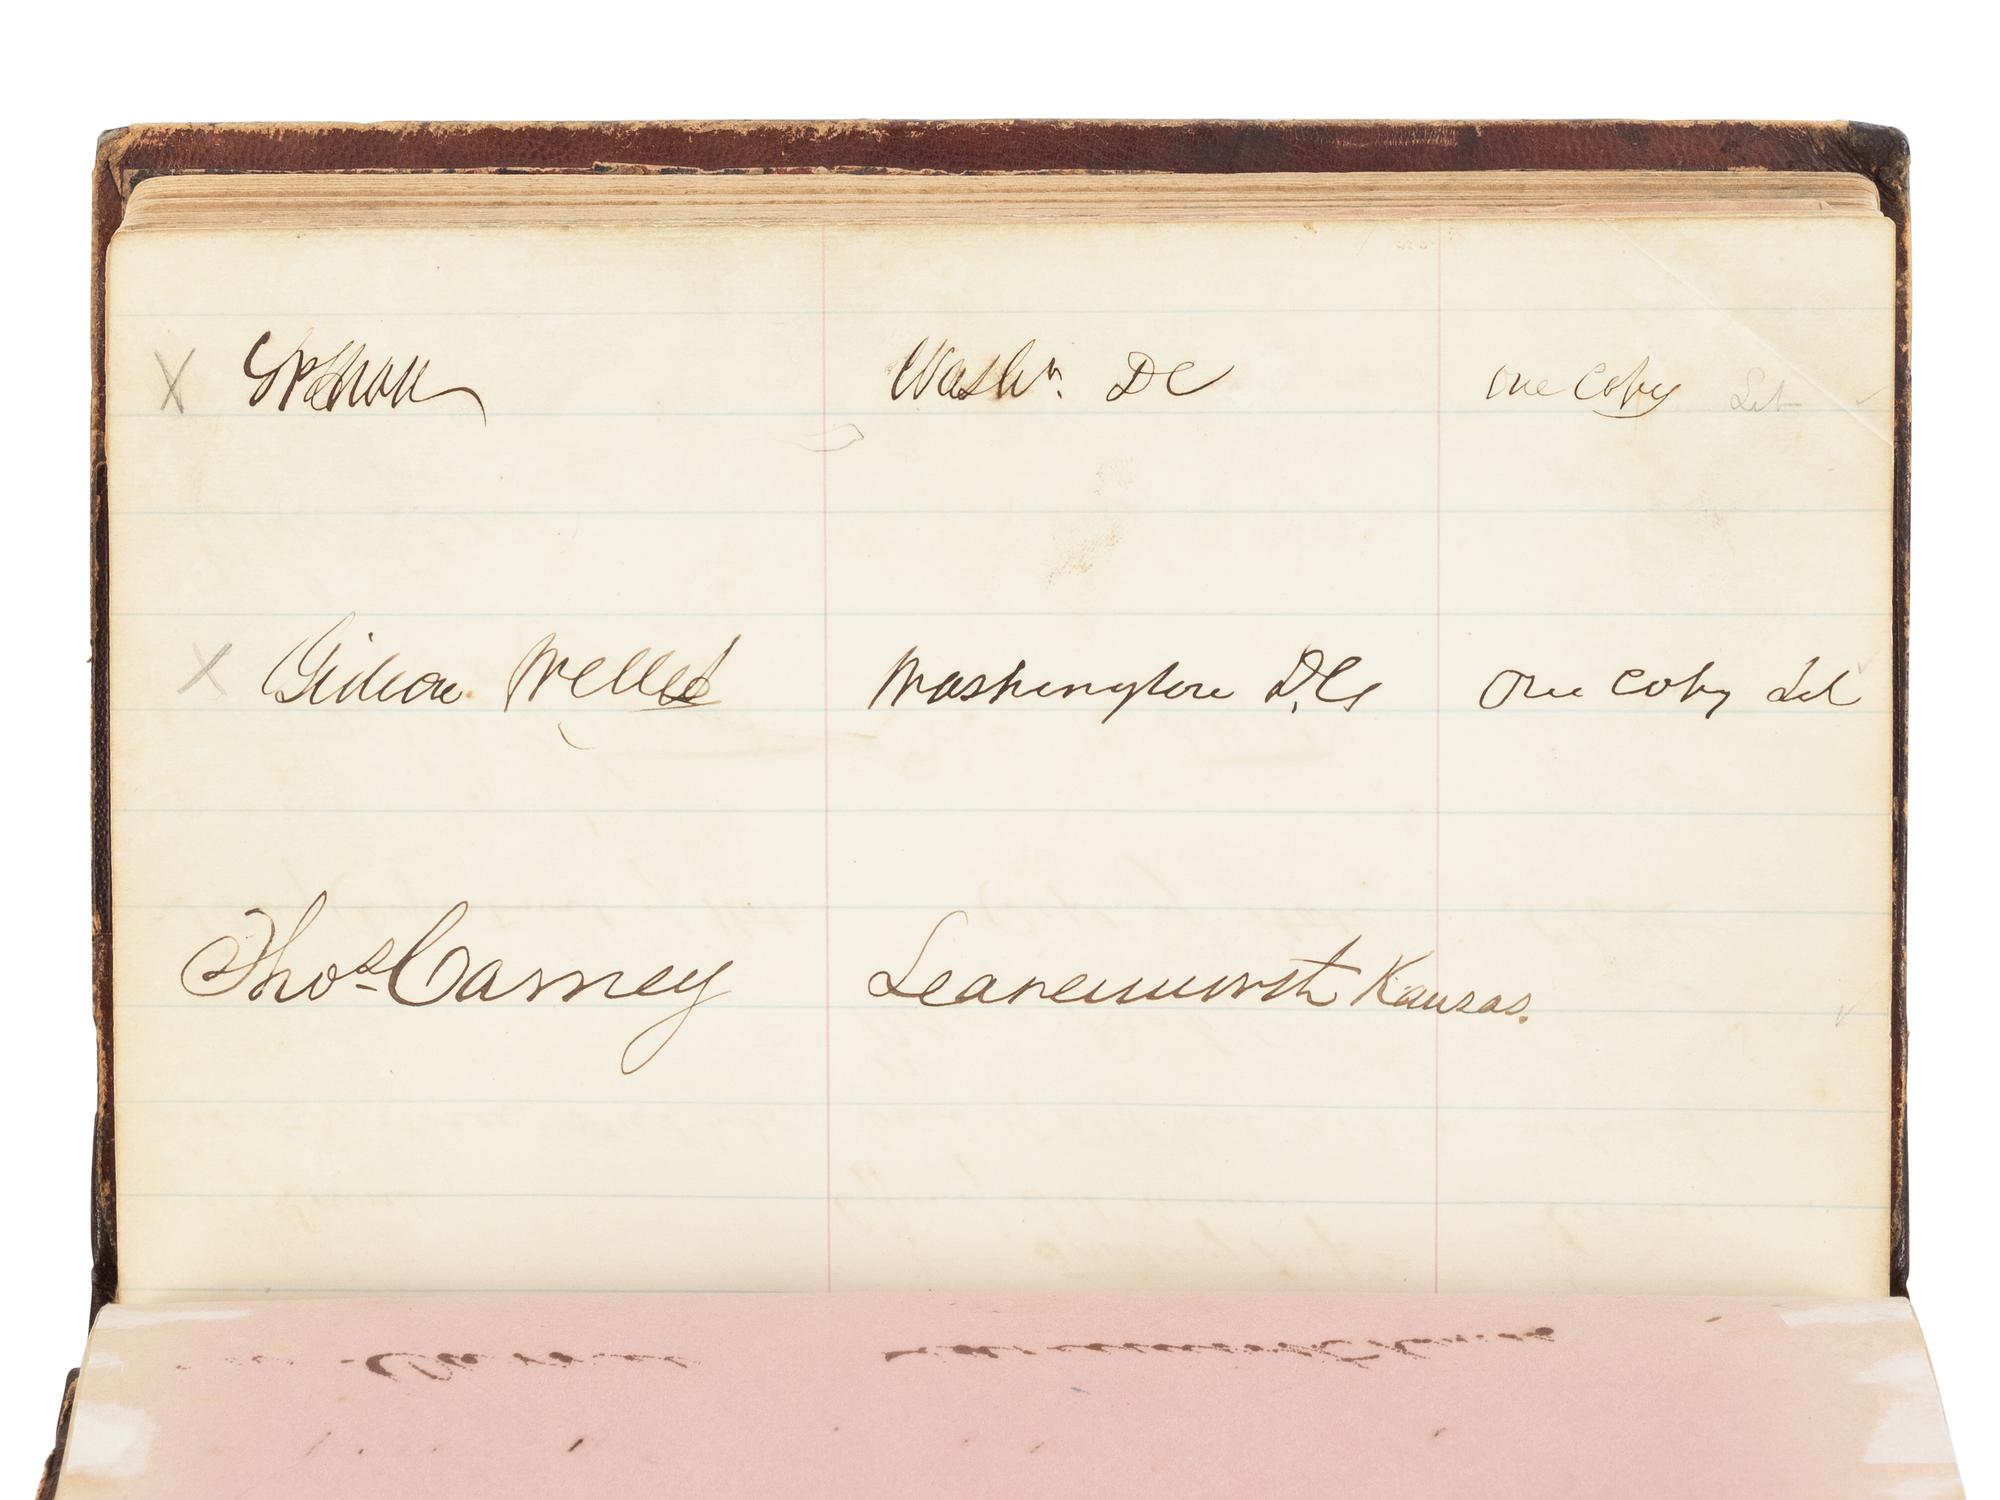 Washn. DC one Copy Lit
Gideon Welles Washington D.C. One Copy Lit
Thos. Carney Leavenworth Kansas.